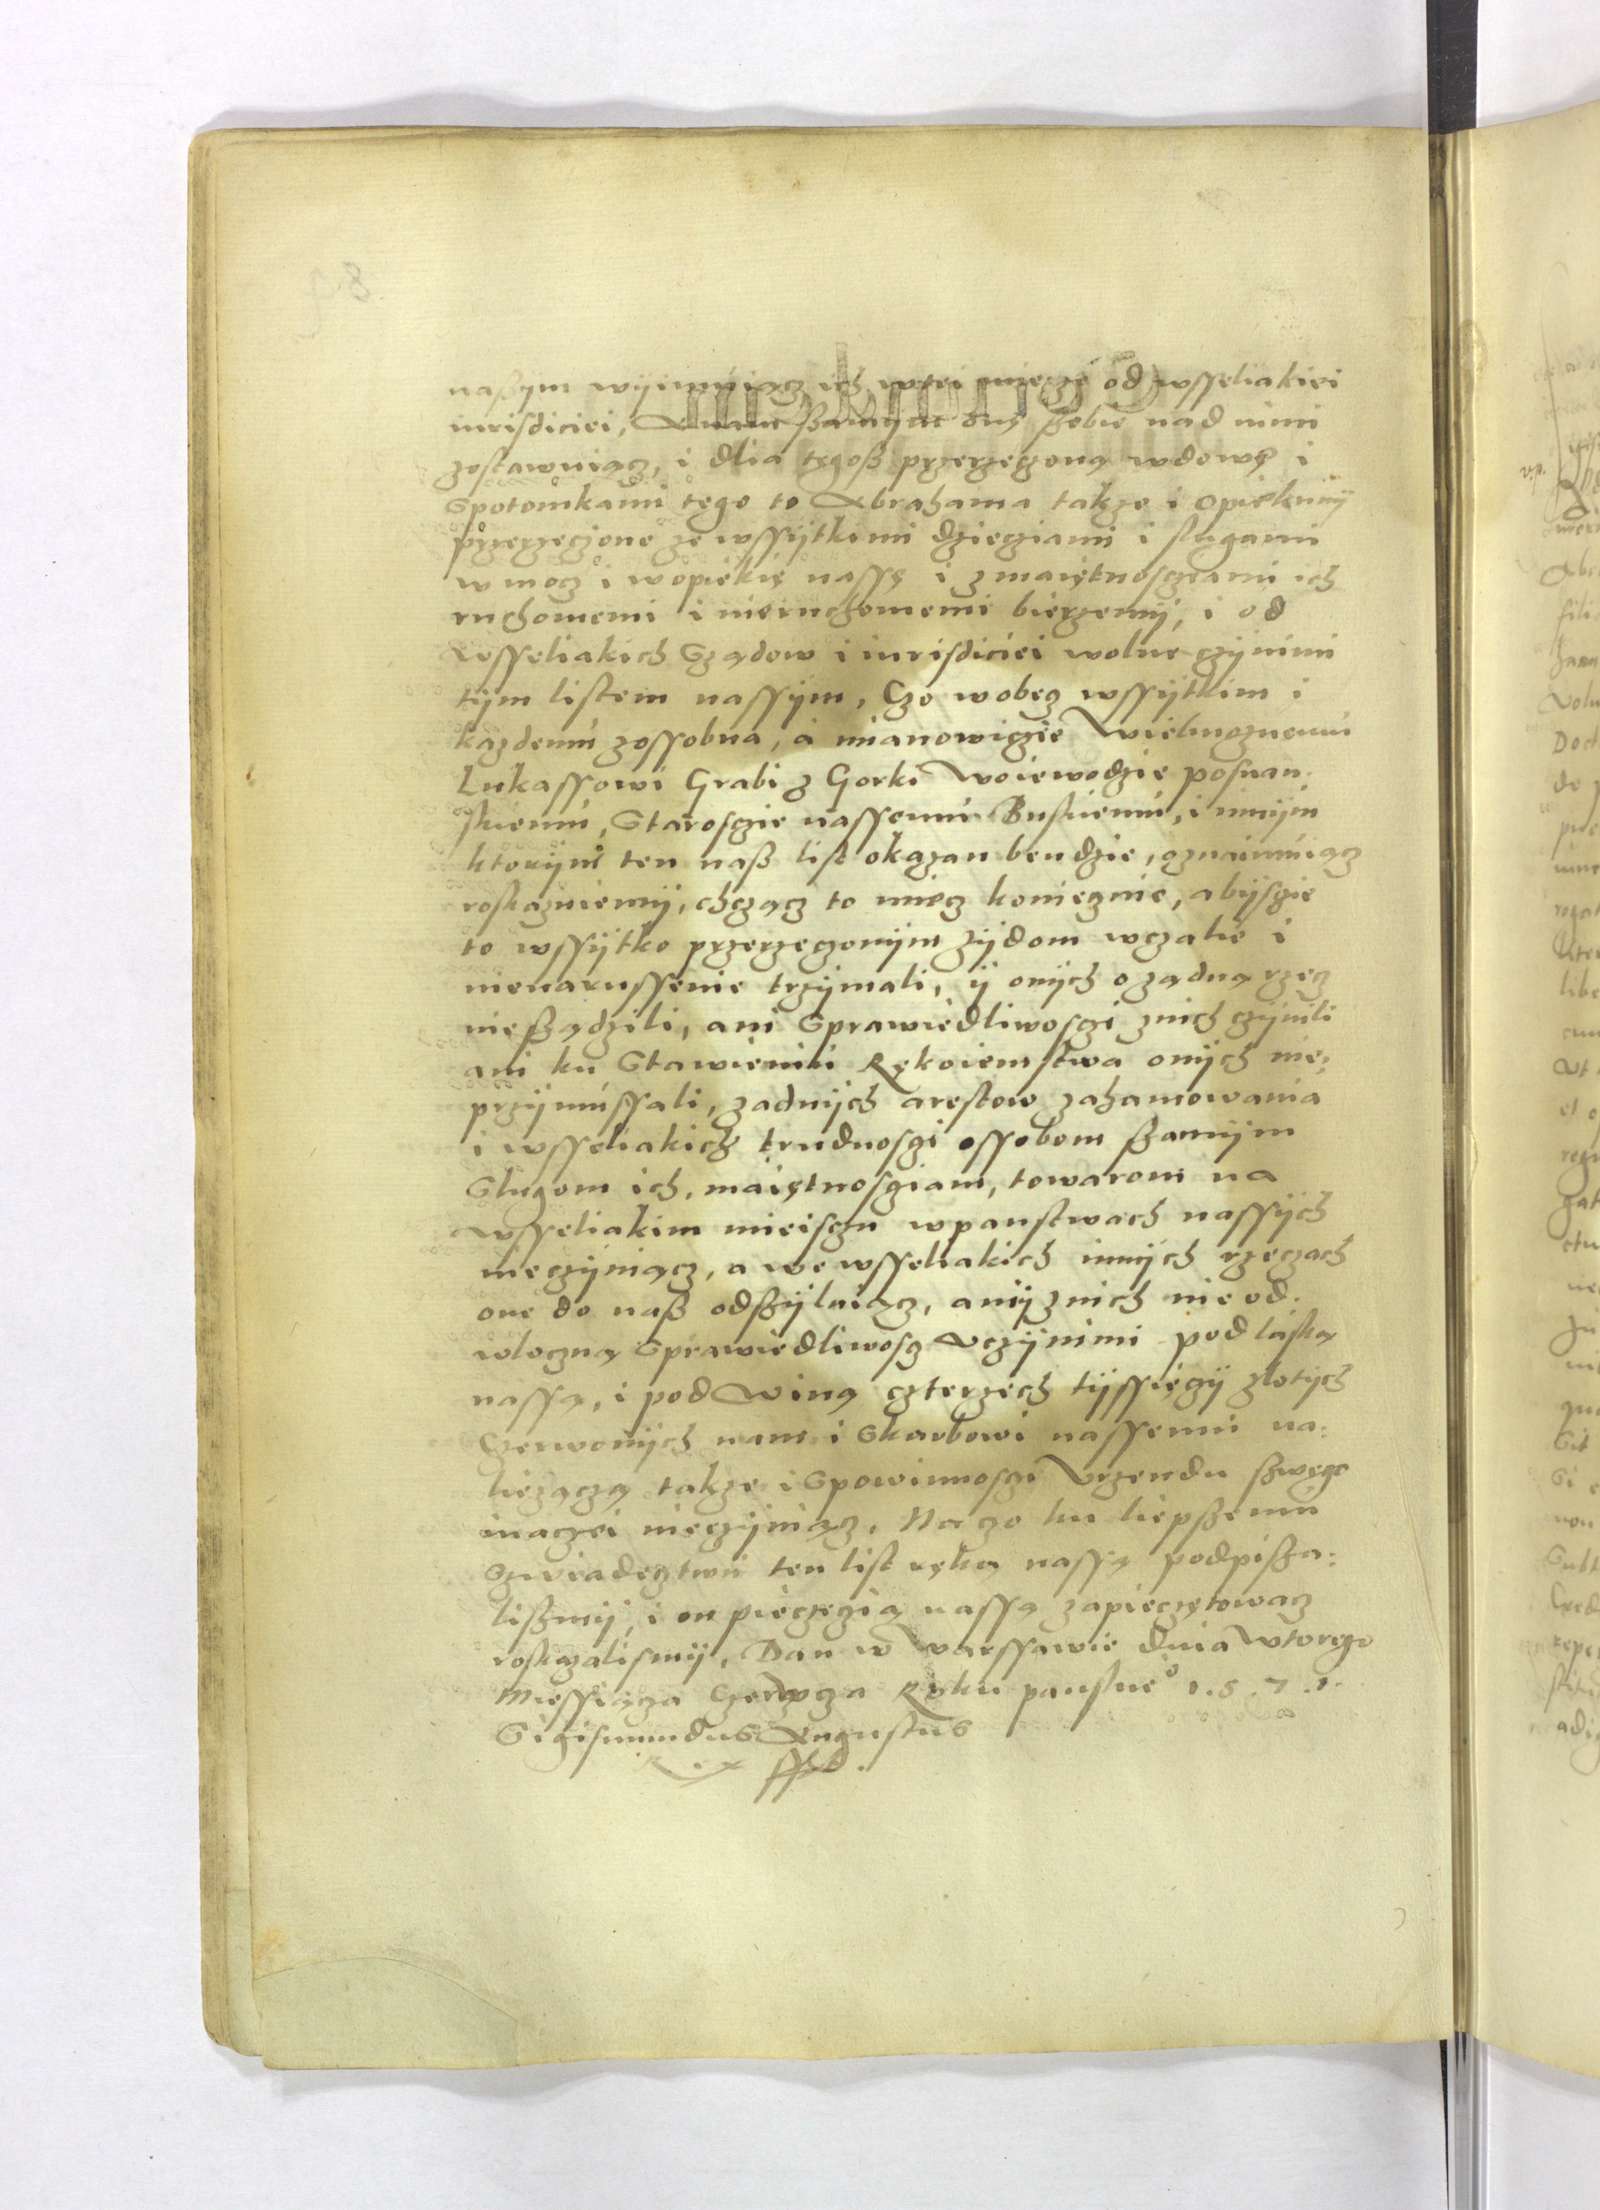 naßym wyimuiącz ich wtei mierze od wsseliakiei
iurisdiciei, A nam ßamym ßebie nad nimi
zostawuiącz, i dlia tegoß przerzeczoną wdowę i
Spotomkami tego to Abrahama takze i opiekuny
przerzeczone ze wssytkimi dzieciami i slugami
w mocz i wopiekię nassę i zmaiętnosczami ich
ruchomemi i nieruchomemi bierzemy, i od
Wsseliakich Sządow i iurisdiciei wolne czynimi
tym listem nassym, Czo wobecz wssytkim i
kazdemu zossobna, a mianowiczie Wielmoznemu
Lukassowi Grabi z Gorki Woiewodzie posnan
skiemu, Starosczie nassemu Buskiemu, i innym
ktorym ten naß list okazan bendzie, oznaimuiącz
roskazuiemy, chcząc to miecz konieczmie, abysczie
to wssytko przerzeczonym zydom wczalie i
nienarussenie trzymali, y onych o ządną rzecz
nießądzili, ani Sprawiedliwosczi znich czynili
ani ku Stawieniu Rękoiemstwa onych nie-
przymussali, zadnych arestow zahamowania
i wsseliakich trudnosczi ossobom ßamym
Slugom ich, maiętnosciam, towarom na
wsseliakim mieisczu wpanstwach nassych
nieczyniącz, a we wsseliakich innych rzeczach
one do naß odßylaiącz, a my znich nie od-
wloczną Sprawiedliwoscz Uczynimi pod laską
nassą, i pod Winą czterzech tyssięczy zlotych
Czerwonych nam i Skarbowi nassemu na-
liezączą takze i Spowinnosczi Urzendu ßwego
inaczei nieczyniącz. Na czo ku liepßemu
Swiadecztwu ten list ręką nassą podpißa-
lißmy, i on pieczęczią nassą zapieczętowacz
roskazalismy, Dan w Warssawie dnia Wtorego
Miessiącza Czerwcza Roku panskiego 1.5.7.1.
Sigismundus Augustus
Rex sszt.